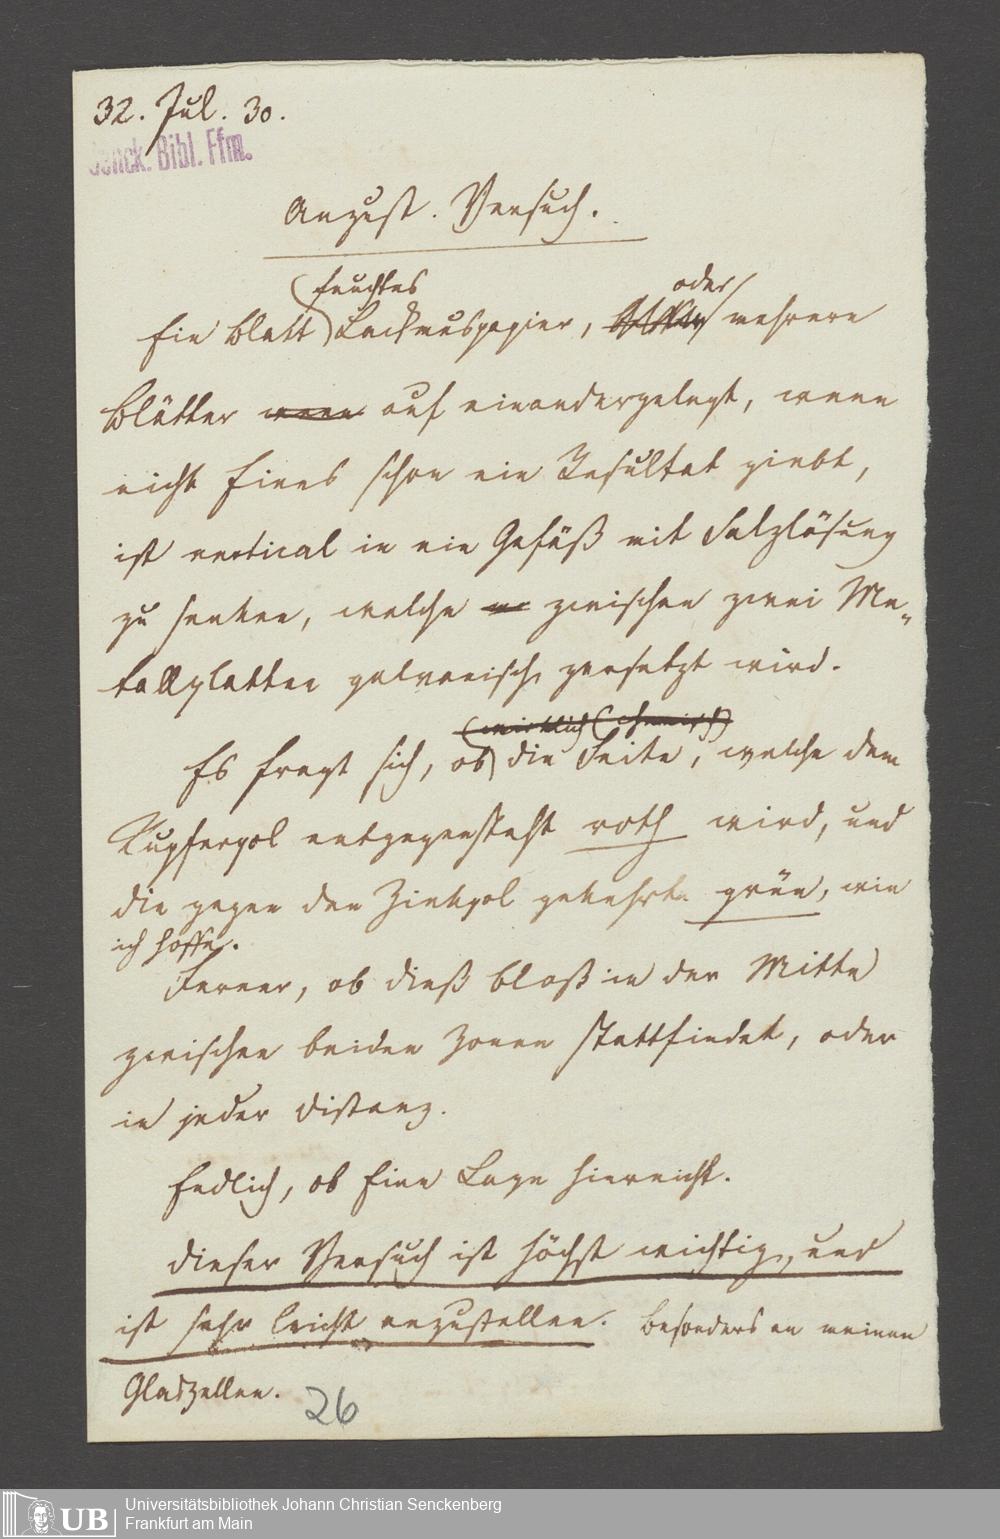 32. Jul. 30.
Senck. Bibl. Ffm.
Anzust. Versuch.
feuchtes oder
Ein Blatt Lackmuspapier, mehrere
Blätter wenn auf einandergelegt, wenn
nicht Eines schon ein Resultat giebt,
ist vertical in ein Gefäß mit Salzlösung
zu senken, welche zwischen zwei Me-
tallplatten galvanisch zersetzt wird.
(wirklich (chemisch)
Es fragt sich, ob die Seite, welche dem
Kupferpol entgegensteht roth wird, und
die gegen den Zinkpol gekehrte grün, wie
ich hoffe.
Ferner, ob dieß bloß in der Mitte
zwischen beiden Zonen stattfindet, oder
in jeder Distanz.
Endlich, ob Eine Lage hinreicht.
Dieser Versuch ist höchst wichtig, und
ist sehr leicht anzustellen. Besonders an meinen
Glaszellen.
26
UB
Universitätsbibliothek Johann Christian Senckenberg
Frankfurt am Main